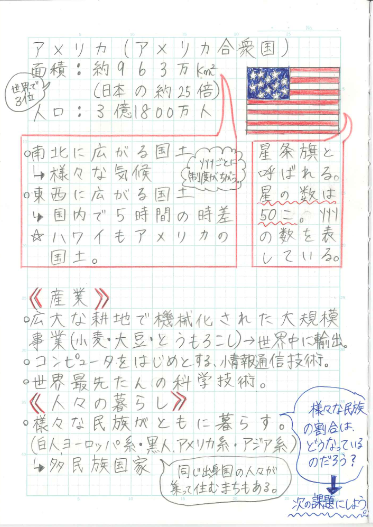 アメリカ(アメリカ合衆国)
面積:約963万km²
世界で3位
(日本の約25倍)
人口:3億1800万人
○南北に広がる国土
→様々な気候
州ごとに
制度がちがう
○東西に広がる国土
↳国内で5時間の時差
☆ハワイもアメリカの
国土。
星条旗と
呼ばれる。
星の数は
50こ。州
の数を表
している。
《産業》
○広大な耕地で機械化された大規模
事業(小麦・大豆・とうもろこし)→世界中に輸出。
○コンピュータをはじめとする、情報通信技術。
○世界最先たんの科学技術。
《人々の暮らし》
○様々な民族がともに暮らす。
(白人,ヨーロッパ系・黒人,アメリカ系・アジア系)
↳多民族国家
同じ出身国の人々が
集って住むまちもある。
様々な民族
の割合は、
どうなっている
のだろう?
次の課題にしよう。